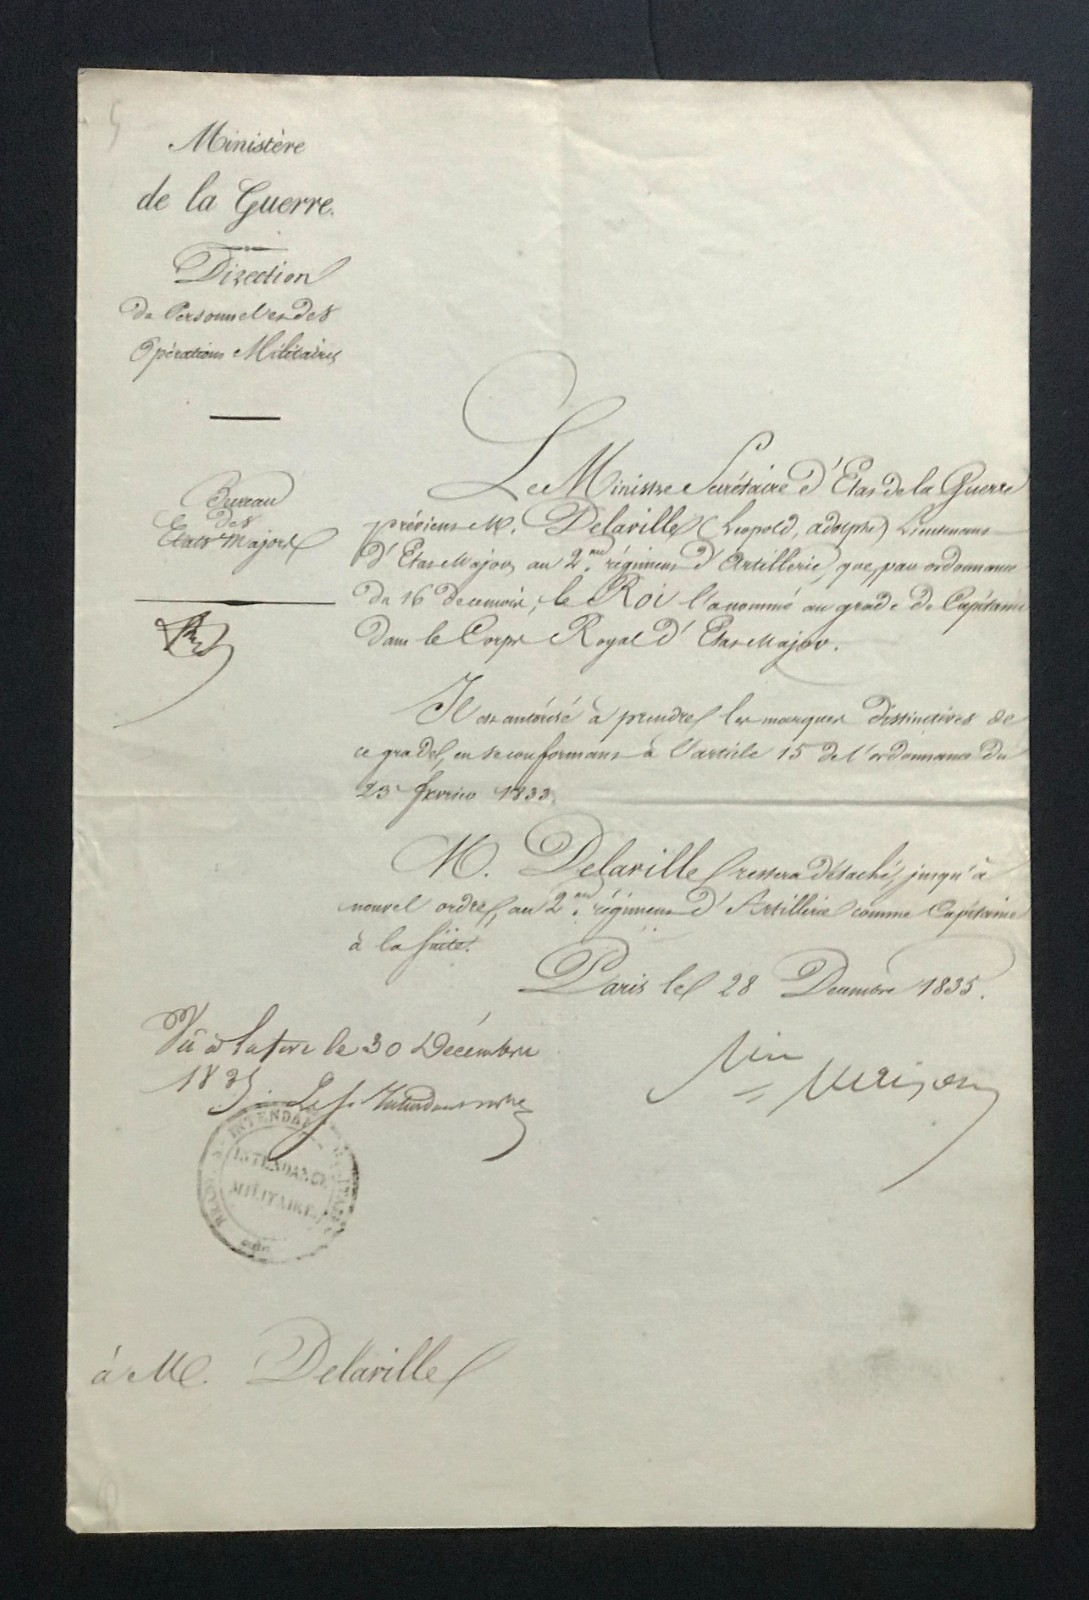 Ministère
de la Guerre.
Direction
du Personnel et des
Opérations Militaires
Bureau
des
Etats Majors
Le Ministre Secrétaire d'Etat de la Guerre
prévient M. Delaville (Léopold, adolphe) Lieutenant
d'Etat Major, au 2.me régiment d'Artillerie, que, par ordonnance
du 16 décembre, le Roi l'a nommé au grade de Capitaine
dans le Corps Royal d'Etat Major.
Il est autorisé à prendre les marques distinctives de
ce grade, en se conformant à l'article 15 de l'ordonnance du
23 février 1833.
M. Delaville restera détaché, jusqu'à
nouvel ordre, au 2.me régiment d'Artillerie comme Capitaine
à la suite.
Paris le 28 Décembre 1835.
Vu à Lafère le 30 Décembre
1835. Le S. Intendant mre
INTENDANCE
MILITAIRE
à M. Delaville